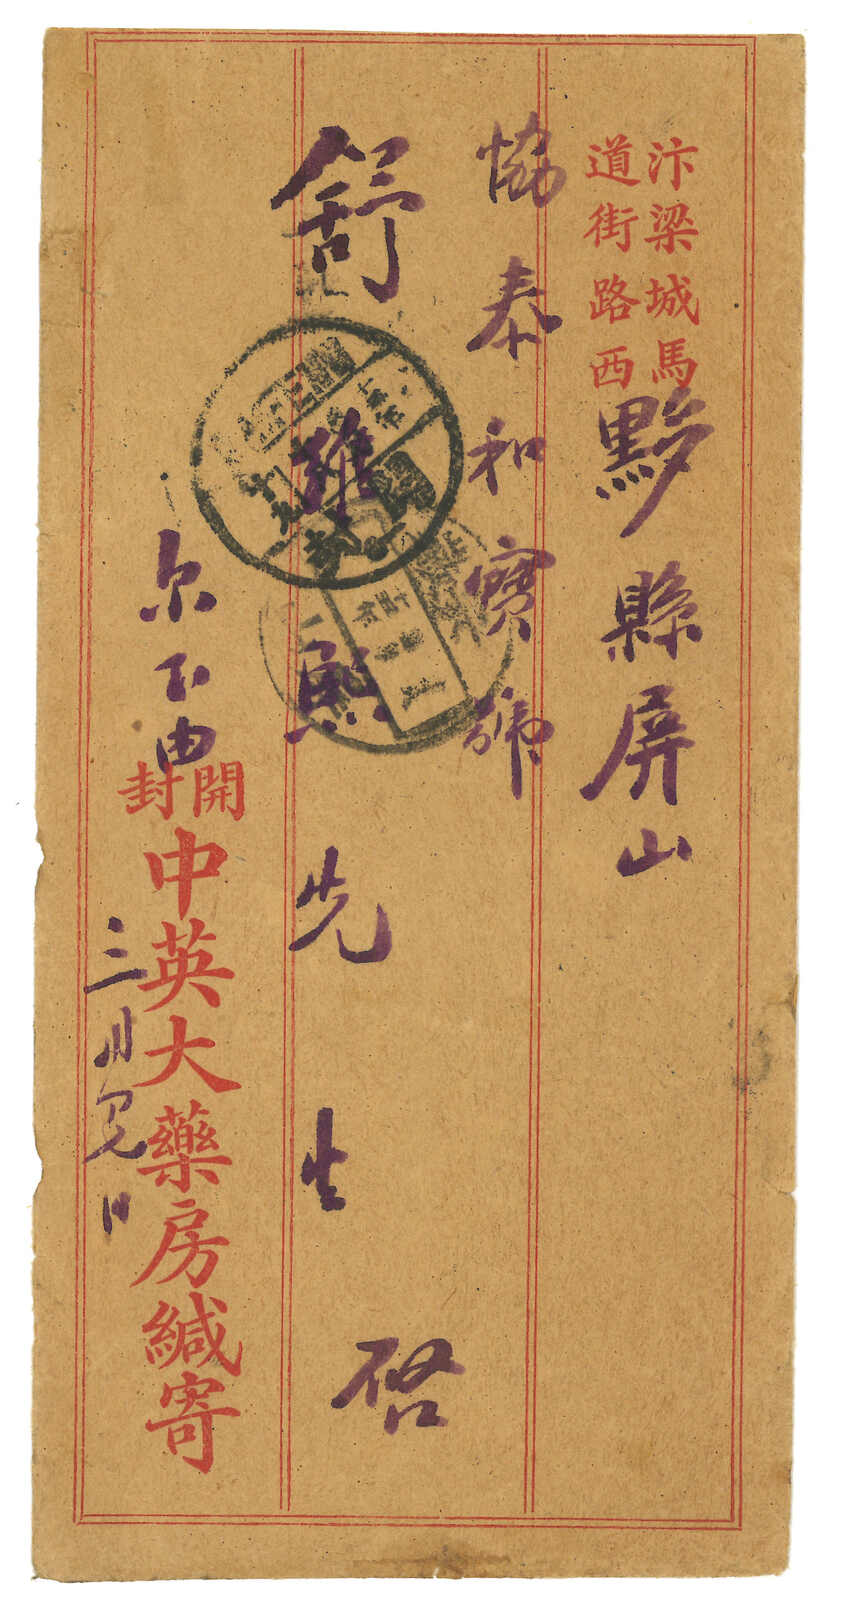 汴梁城馬
道街路西
黟縣屏山
協泰和寶號
舒維熙先生 啓
尔不由
開封
中英大藥房緘寄
三月 日